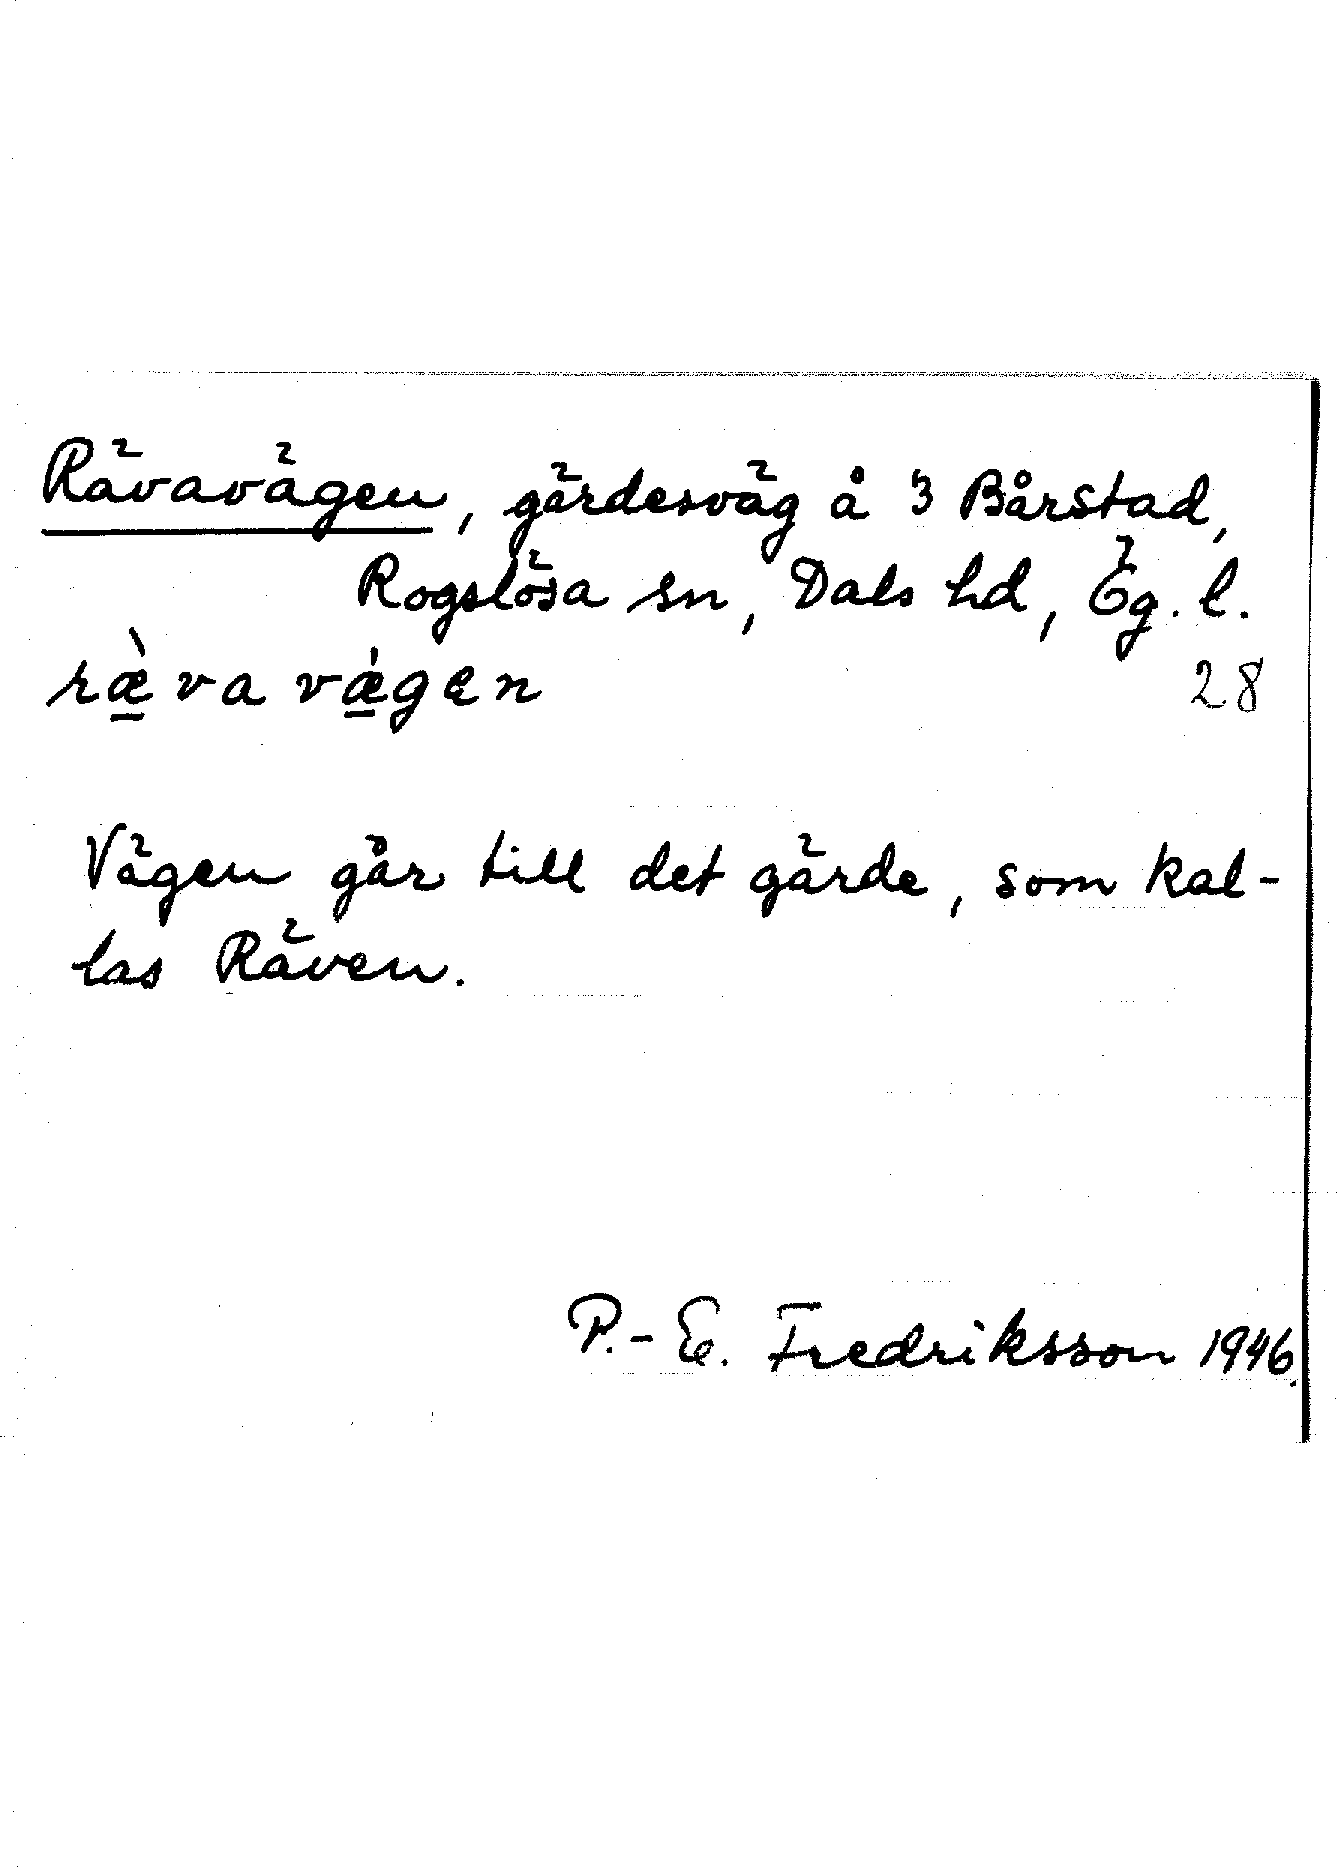 Rävavägen, gärdesväg å 3 Bårstad,
Rogslösa sn, Dals hd, Ög. l.
ræ̀va vǽgen
28
Vägen går till det gärde, som kal-
las Räven.
P.-E. Fredriksson 1946.